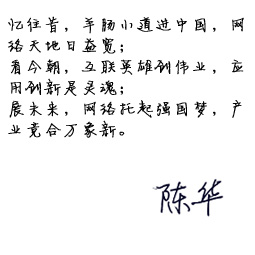 忆往昔，羊肠小道进中国，网
络天地日益宽；
看今朝，互联英雄创伟业，应
用创新是灵魂；
展未来，网络托起强国梦，产
业竞合万象新。
陈华